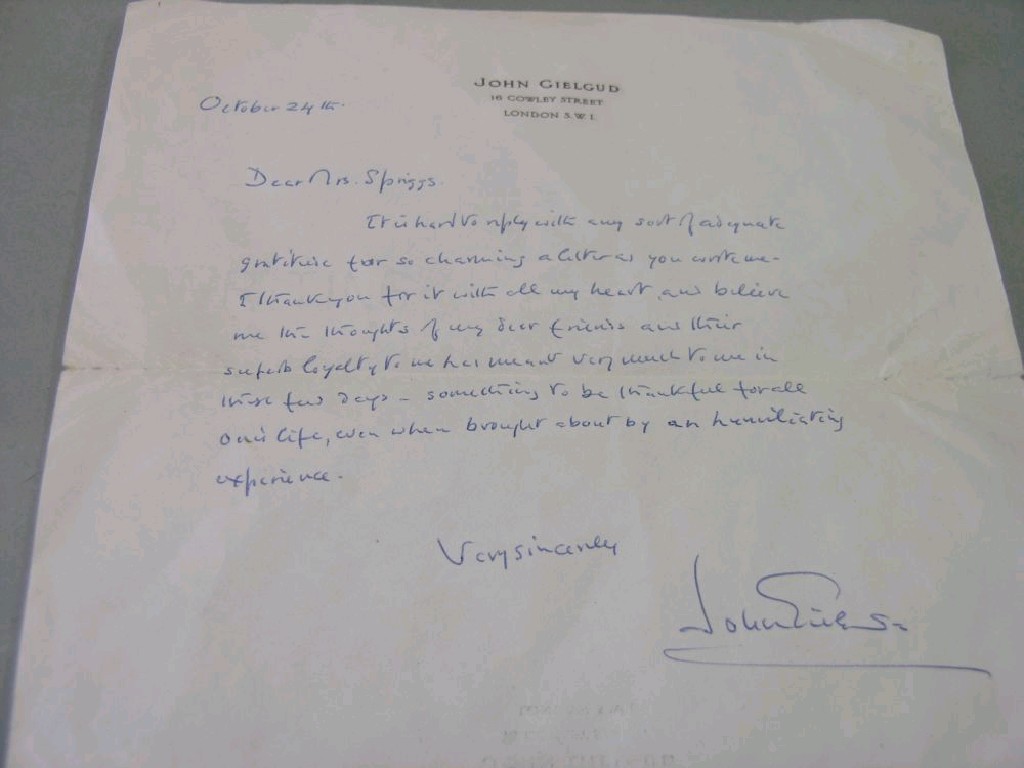 JOHN GIELGUD
16 COWLEY STREET
LONDON S.W.1.
October 24th.
Dear Mrs. Spriggs.
It is hard to reply with any sort of adequate
gratitude for so charming a letter as you wrote me.
I thank you for it with all my heart, and believe
me the thoughts of my dear friends and their
superb loyalty to me has meant very much to me in
these few days - something to be thankful for all
one's life, even when brought about by an humiliating
experience.
Very sincerely
John Gielgud